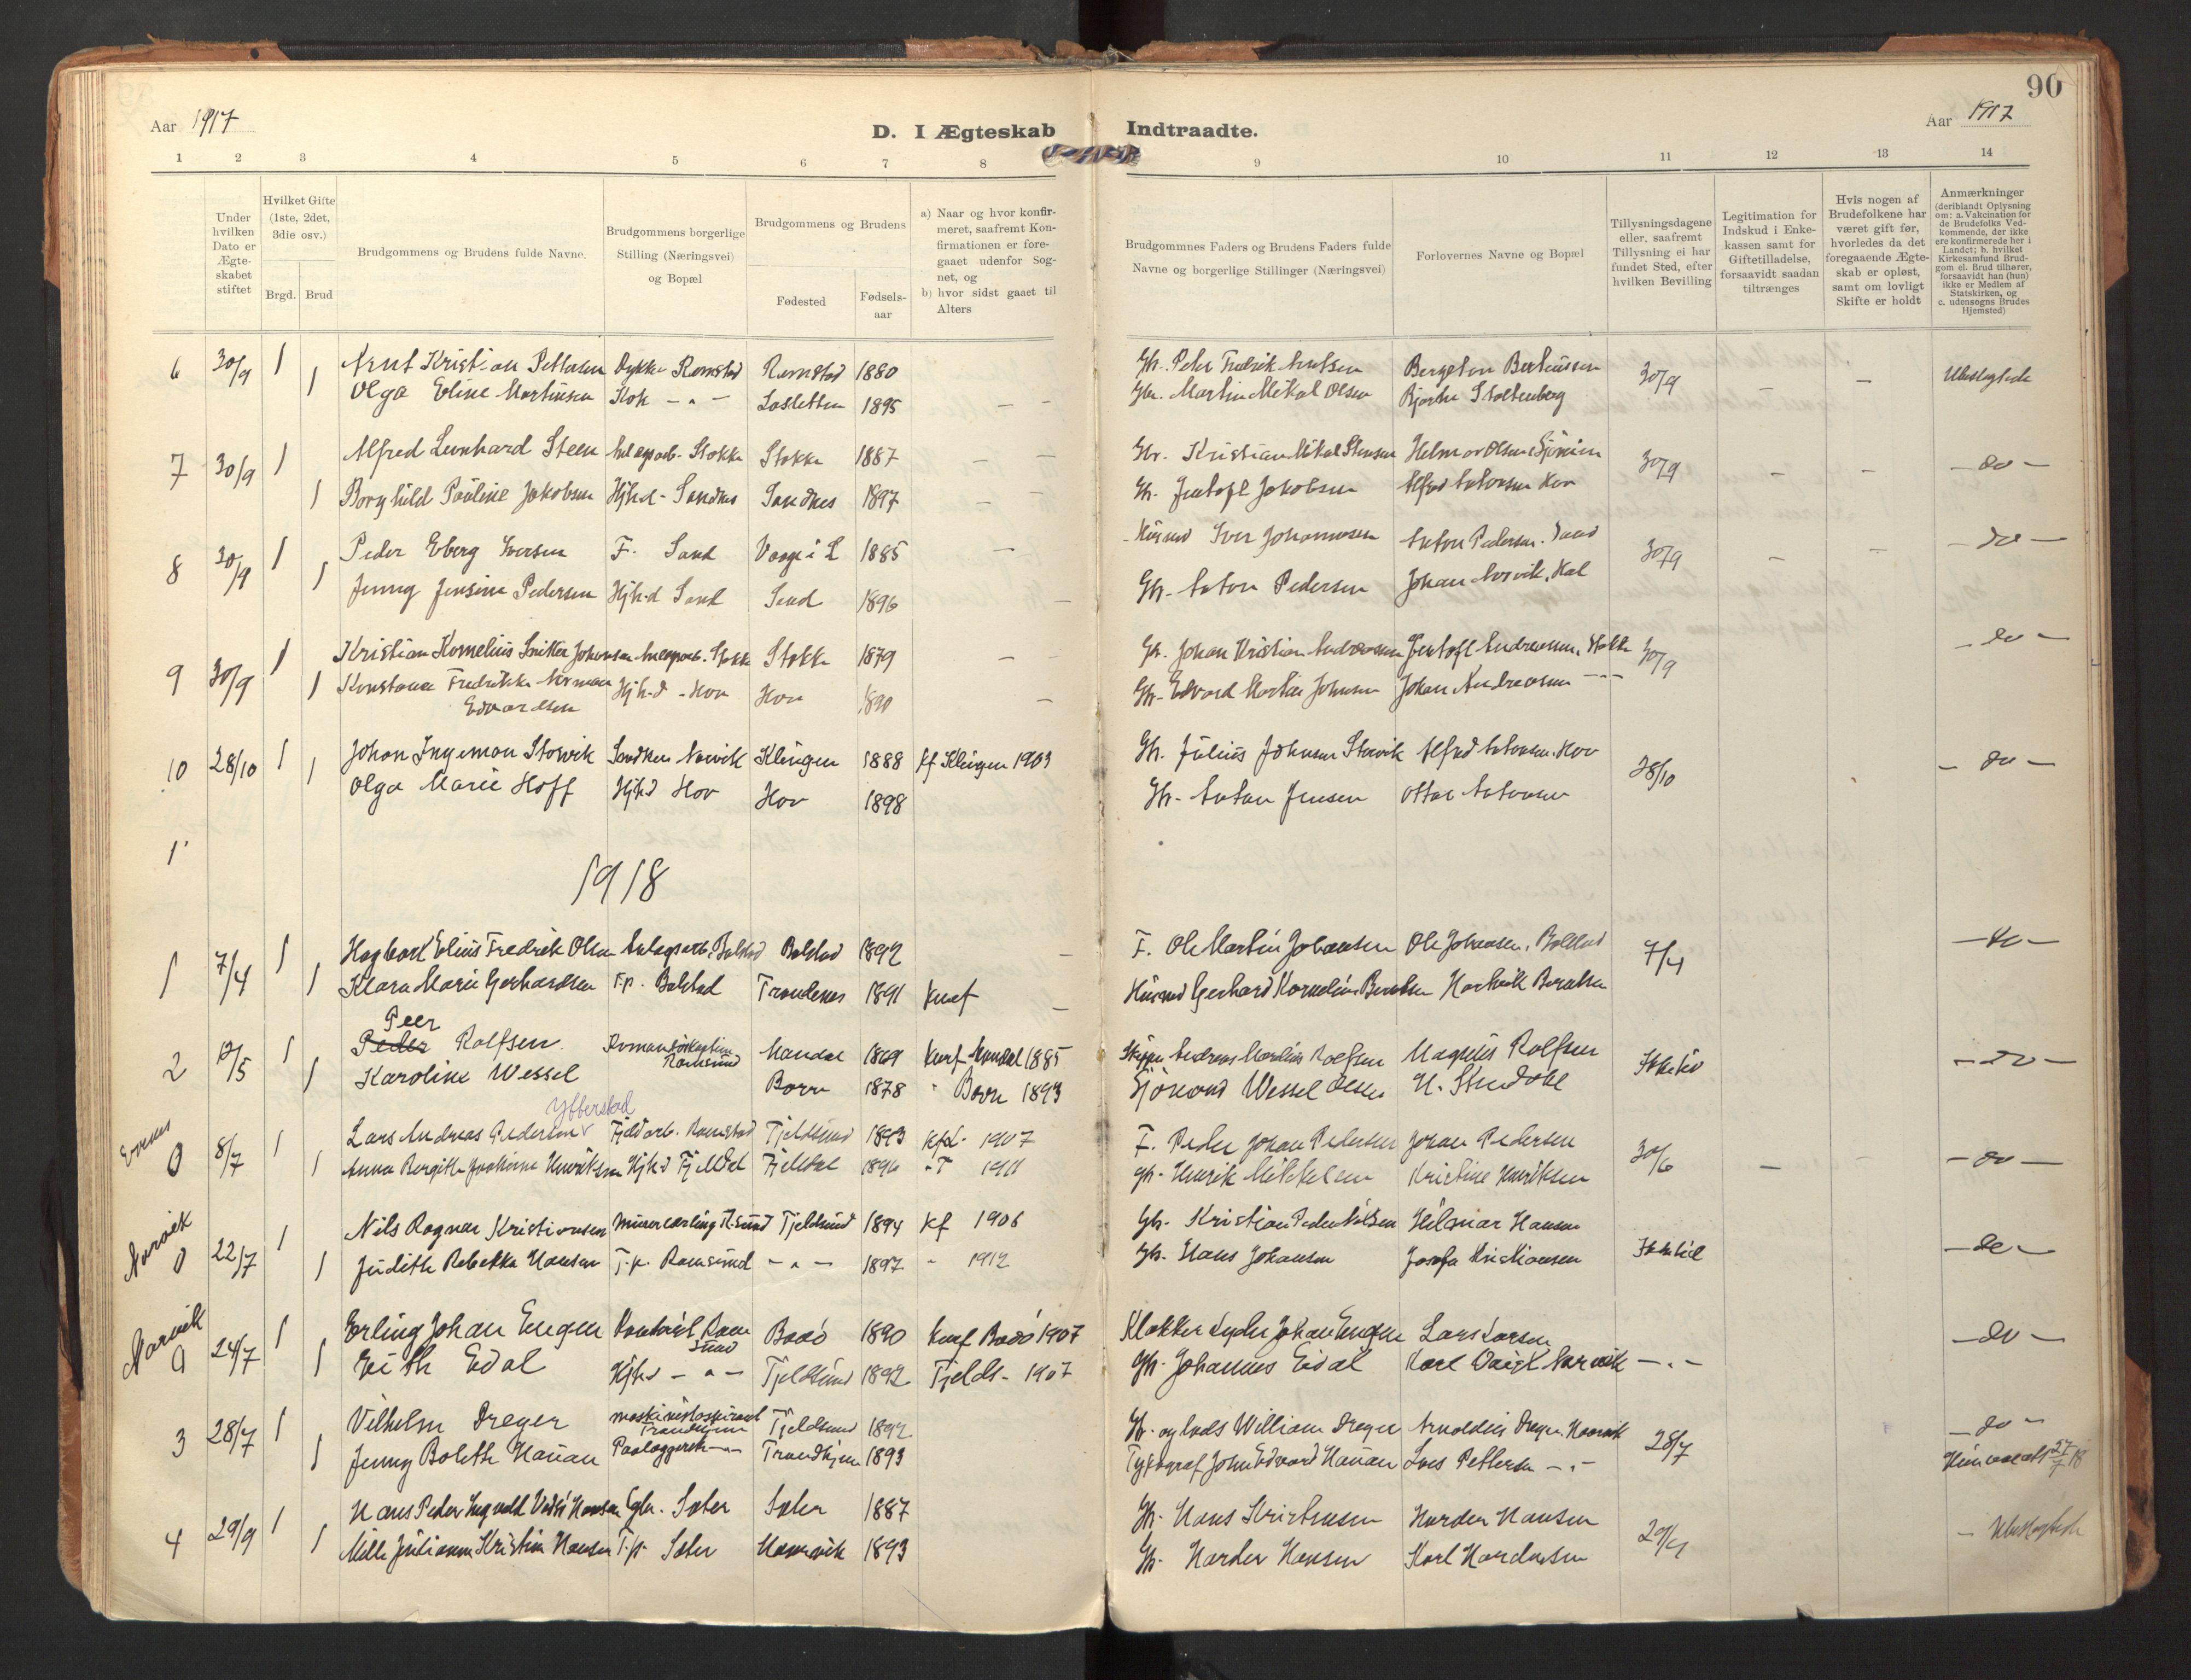 90
Aar 1917
D. I Ægteskab Indtraadte.
Aar 1917
1 2 3 4 5 6 7 8 9 10 11 12 13 14
Under hvilken Dato er Ægteskabet stiftet
Hvilket Gifte (1ste, 2det, 3die osv.)
Brgd. Brud
Brudgommens og Brudens fulde Navne.
Brudgommens borgerlige Stilling (Næringsvei) og Bopæl
Brudgommens og Brudens
Fødested
Fødsels-aar
a) Naar og hvor konfirmeret, saafremt Konfirmationen er foregaaet udenfor Sognet, og
b) hvor sidst gaaet til Alters
Brudgommnes Faders og Brudens Faders fulde Navne og borgerlige Stillinger (Næringsvei)
Forlovernes Navne og Bopæl
Tillysningsdagene eller, saafremt Tillysning ei har fundet Sted, efter hvilken Bevilling
Legitimation for Indskud i Enkekassen samt for Giftetilladelse, forsaavidt saadan tiltrænges
Hvis nogen af Brudefolkene har været gift før, hvorledes da det foregaaende Ægteskab er opløst, samt om lovligt Skifte er holdt
Anmærkninger (deriblandt Oplysning om: a. Vakcination for de Brudefolks Vedkommende, der ikke ere konfirmerede her i Landet; b. hvilket Kirkesamfund Brudgom el. Brud tilhører, forsaavidt han (hun) ikke er Medlem af Statskirken, og c. udensogns Brudes Hjemsted)
6 30/9 1 Arnt Kristian Pettersen Ramstad Ramstad 1880 Gbr. Peter Fredrik Arntsen Bergeton Berteussen 30/9 - - Ubeslægtede
1 Olga Eline Martinsen Kok - " - Sasletten 1895 - - Gbr. Martin Mikal Olsen Bjarne Stoltenberg
7 30/9 1 Alfred Leonhard Steen Stokke Stokke 1887 - - Gbr. Kristian Mikal Stensen Helmer Olsen 30/9 - - - do -
1 Borghild Pauline Jakobsen Hjh.d - Sandnes Sandnes 1897 - - Gb. Jentoft Jakobsen Alfred Antonsen Hov
8 30/9 1 Peder Eberg Iversen F. Sand Vaage i L 1885 - Husmd Iver Johannesen Anton Pedersen. Sand 30/9 - - - do -
1 Jenny Jensine Pedersen Hjh.d Sand Sand 1896 - Gb. Anton Pedersen Johan Norvik, Hol
9 30/9 1 Kristian Kornelius Johansen Anlægsarb. Stokke Stokke 1879 - Gb. Johan Kristian Andreassen Jentoft Andreassen, Stokke 30/9 - do -
1 Konstance Fredrikke Norman Hjh.d - Hov Hov 1890 - Gb. Edvard Martin Johnsen Johan Andreassen - " -
Edvardsen
10 28/10 1 Johan Ingeman Storvik Narvik Klingen 1888 Kf Klingen 1903 Gb. Julius Johnsen Storvik Alfred Antonsen. Hov 28/10 - do -
1 Olga Marie Hoff Hjh.d Hov Hov 1898 Gb. Anton Jensen Ottar Antonsen
1
1918
1 7/4 1 Hagbart Elius Fredrik Olsen Anlægsarb. Balstad Balstad 1892 - F. Ole Martin Johansen Ole Johansen, Balstad 7/4 - do -
1 Klara Marie Gerhardsen T.p. Balstad Trondenes 1891 Kunf - Husmd Gerhard Kornelius Berntsen Hartvik Berntsen
Peer
2 12/5 1 Peder Rolfsen. Ramsund Mandal 1869 Kunf Mandal 1885 Skipper Andreas Mardius Rolfsen Magnus Rolfsen - do -
1 Karoline Wessel Borre 1878 " Borre 1893 Sjømand Wessel Olsen
Ytterstad
Evenes 0 8/7 1 Lars Andreas Pedersen Fjeldarb. Ramstad Tjeldsund 1893 Kf. 1907 F. Peder Johan Pedersen Johan Pedersen 30/6 - - do -
1 Anna Bergithe Henriksen Hjh.d Fjelldal Fjelldal 1896 - T 1911 Gb. Henrik Mikkelsen Kristine Henriksen
Narvik 0 22/7 1 Nils Ragnar Kristiansen R.sund Tjeldsund 1894 Kf 1906 Gb. Kristian Peder Nilsen Hilmar Hansen - do -
1 Judith Rebekka Hansen T.p. Ramsund - " - 1897 " 1912 Gb. Hans Johansen Josefa Kristiansen
Narvik 0 24/7 1 Erling Johan Engen Ramsund Bodø 1890 Kunf Bodø 1907 Klokker Lyder Johan Engen Lars Larsen - do -
1 Edith Eidal Hjh.d - " - Tjeldsund 1892 Tjelds- 1907 Gb. Johannes Eidal Karl Narvik - " -
3 28/7 1 Vilhelm Dreyer maskinistaspirant Trondhjem Tjeldsund 1892 Gb. og lods William Dreyer Arnoldus Dreyer. Hamvik 28/7 - do -
1 Jenny Bolette Hanan Paalæggersk - " - Trondhjem 1893 Typograf John Edvard Hanan Lars Pettersen - " - 27/7 18
4 29/9 1 Hans Peder Ingvald Hansen Gbr. Sæter Sæter 1887 Gb. Hans Kristensen Harder Hansen - Ubeslægtede
1 Mille Julianna Kristine Hansen T.p. Sæter Hamnvik 1893 Gb. Harder Hansen Karl Hardersen